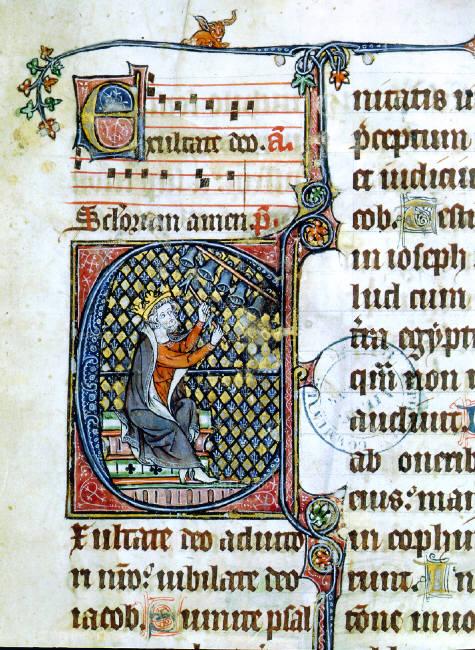 Exultate deo. a.
Sclorum amen. p.
Exultate deo adiuto
ri nro: iubilate deo
iacob. Sumite psal
nitatis
pceptum
et iudiciu
cob. Testi
in ioseph
lud cum
tra egypti
non
audiuit.
ab onerib
eius: man
in cophin
runt. In
tione inuo